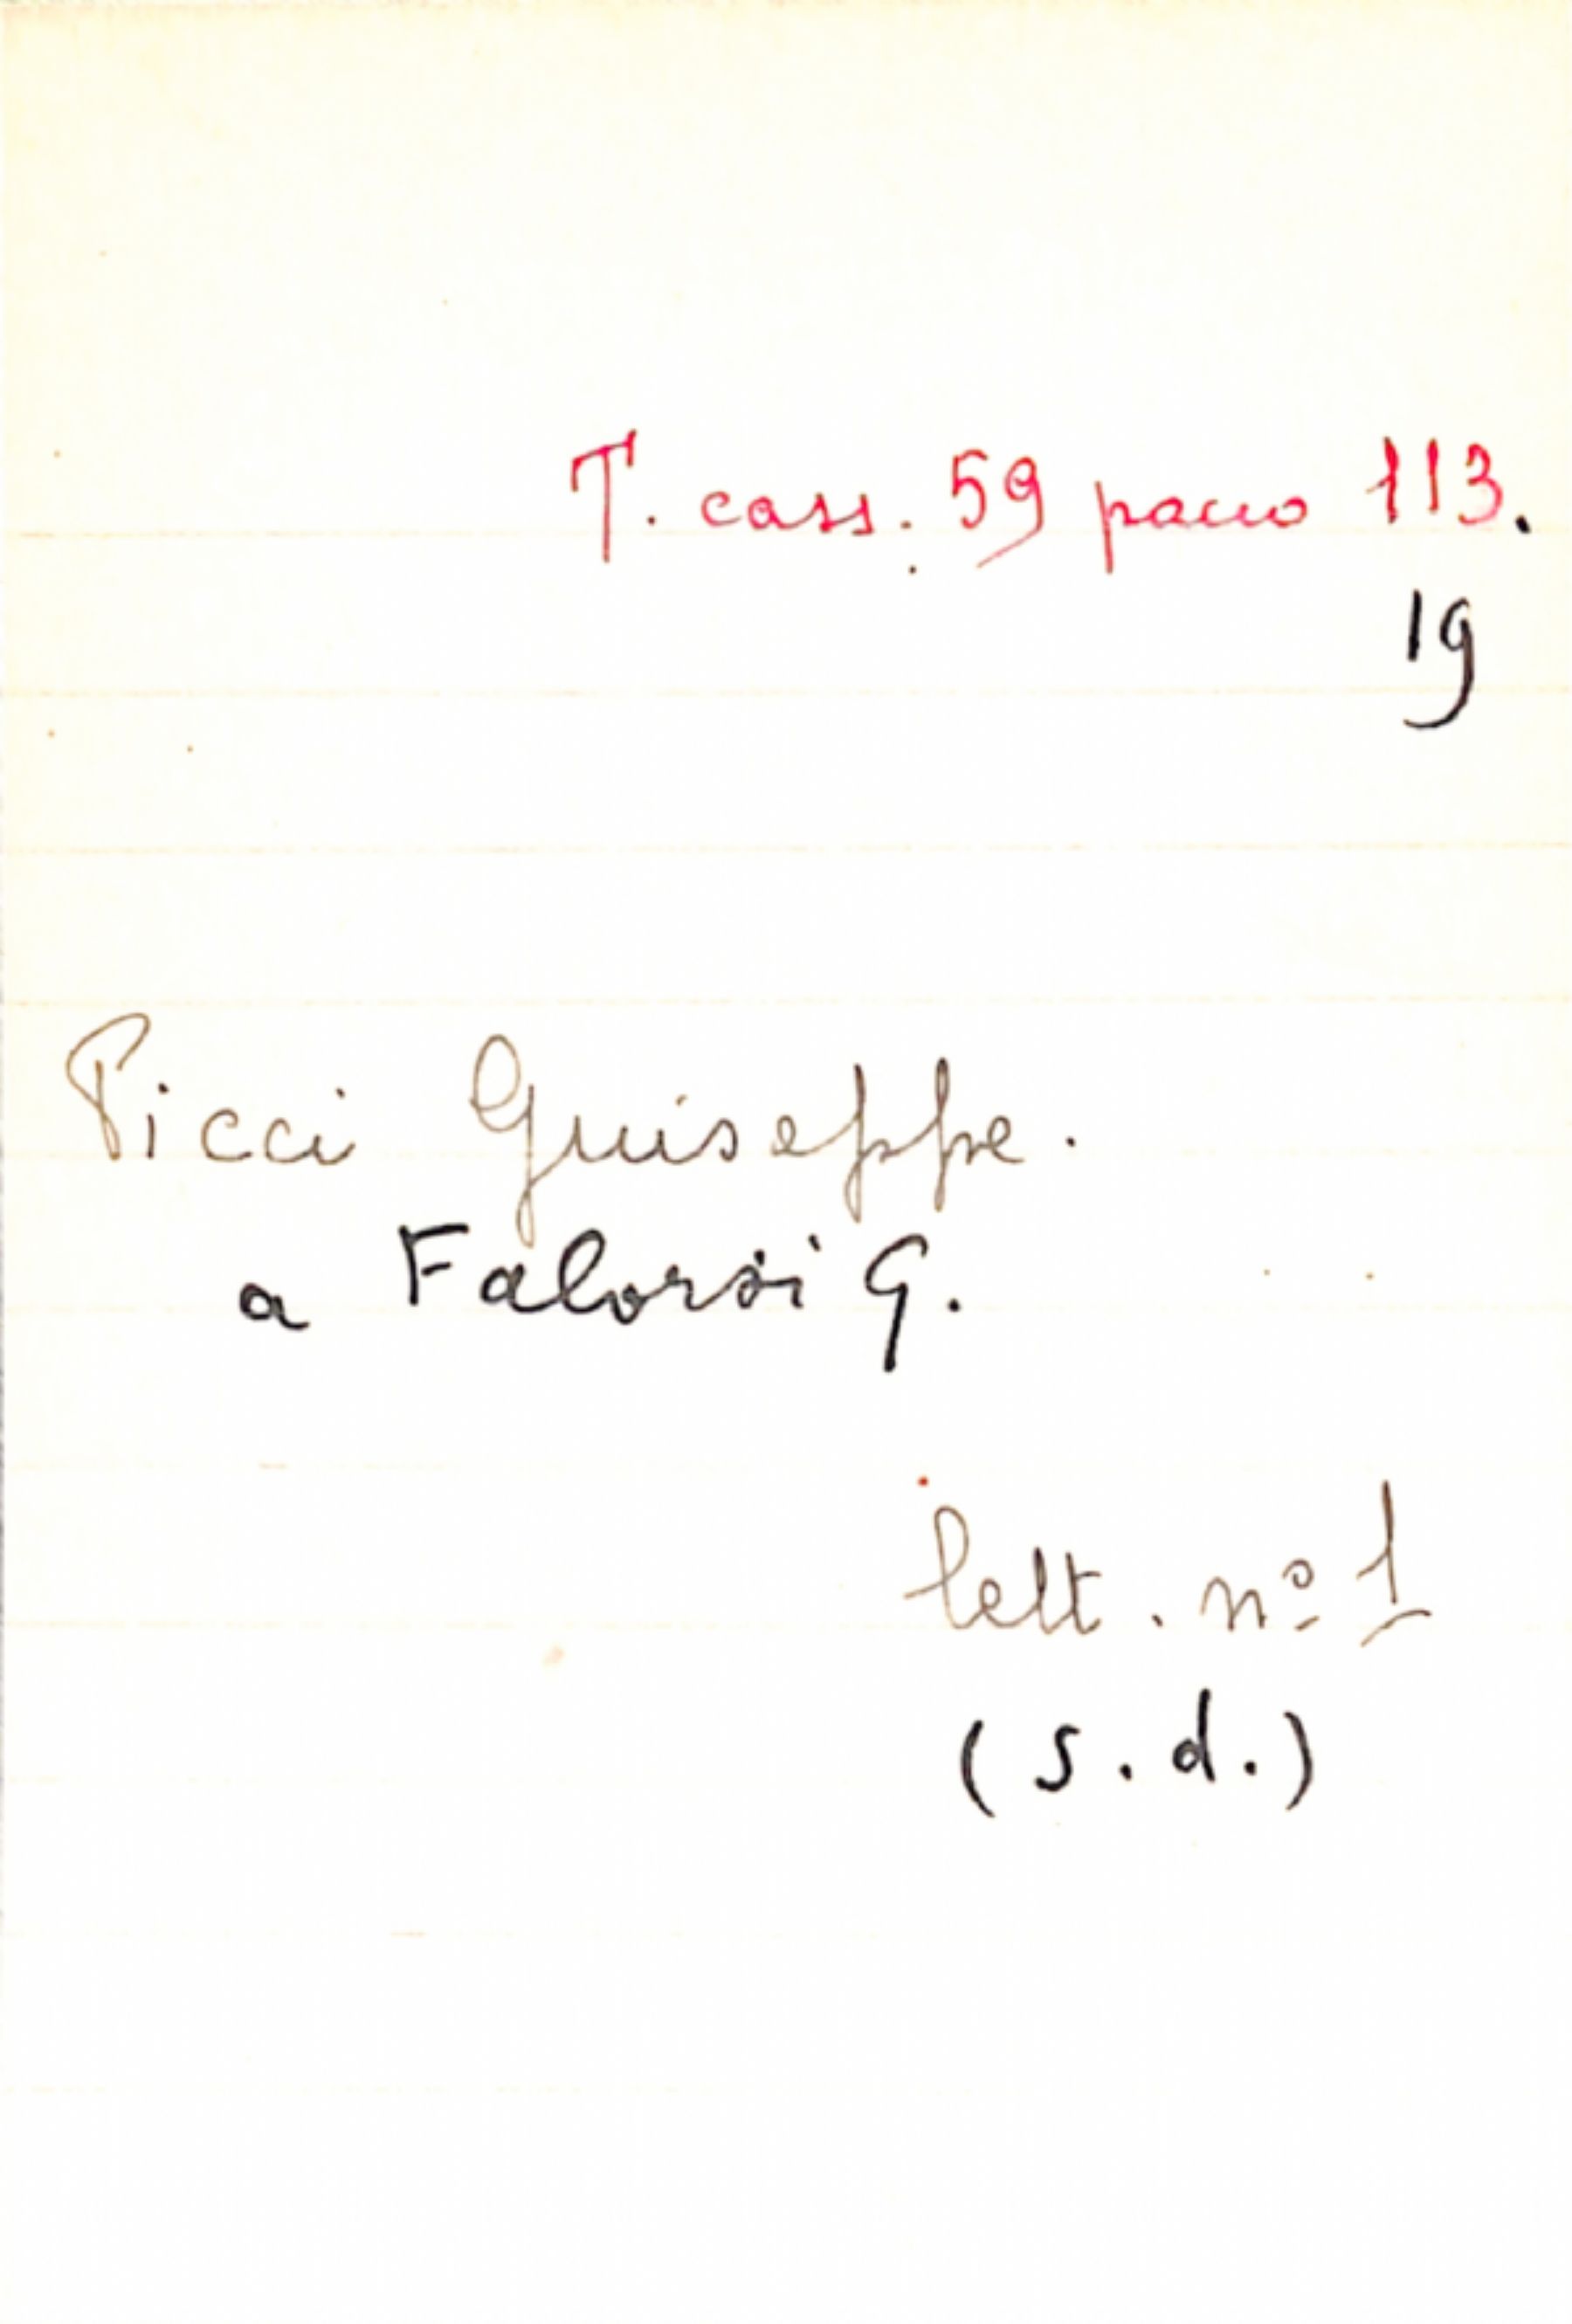 T. cass. 59 pacco 113.
19
Picci Giuseppe.
a Falorsi G.
lett. nº 1
(s.d.)